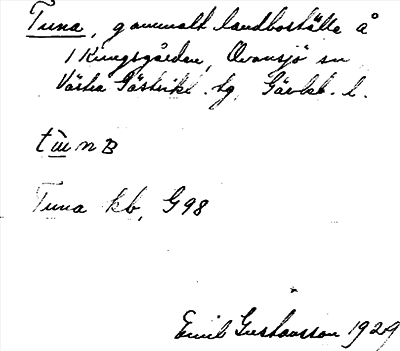 Tuna, gammalt landboställe å
1 Kungsgården, Ovansjö sn
Västra Gästrikl. tg, Gävleb. l.
Tuna kb, G98
Emil Gustavsson 1929